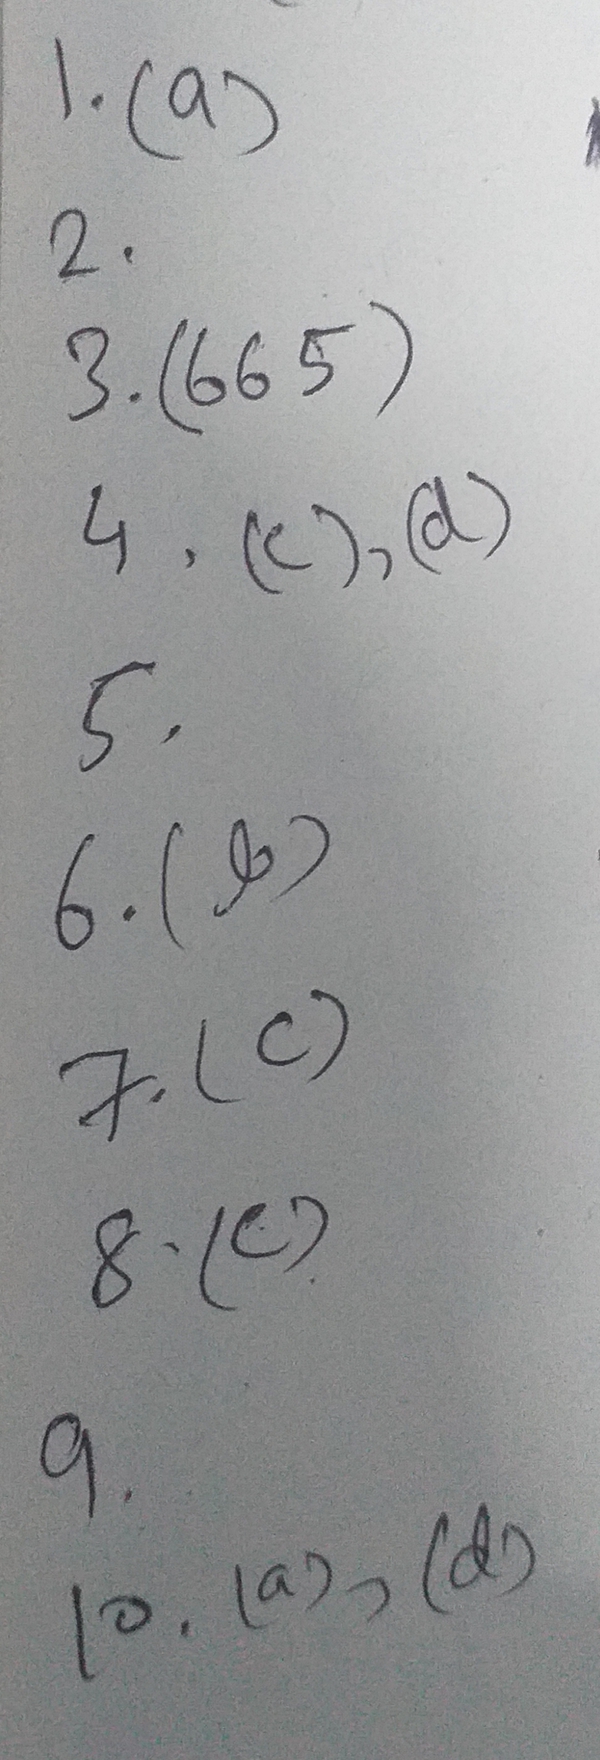 1. (a)
2.
3. (665)
4. (c), (d)
5.
6. (b)
7. (c)
8. (c)
9.
10. (a), (d)